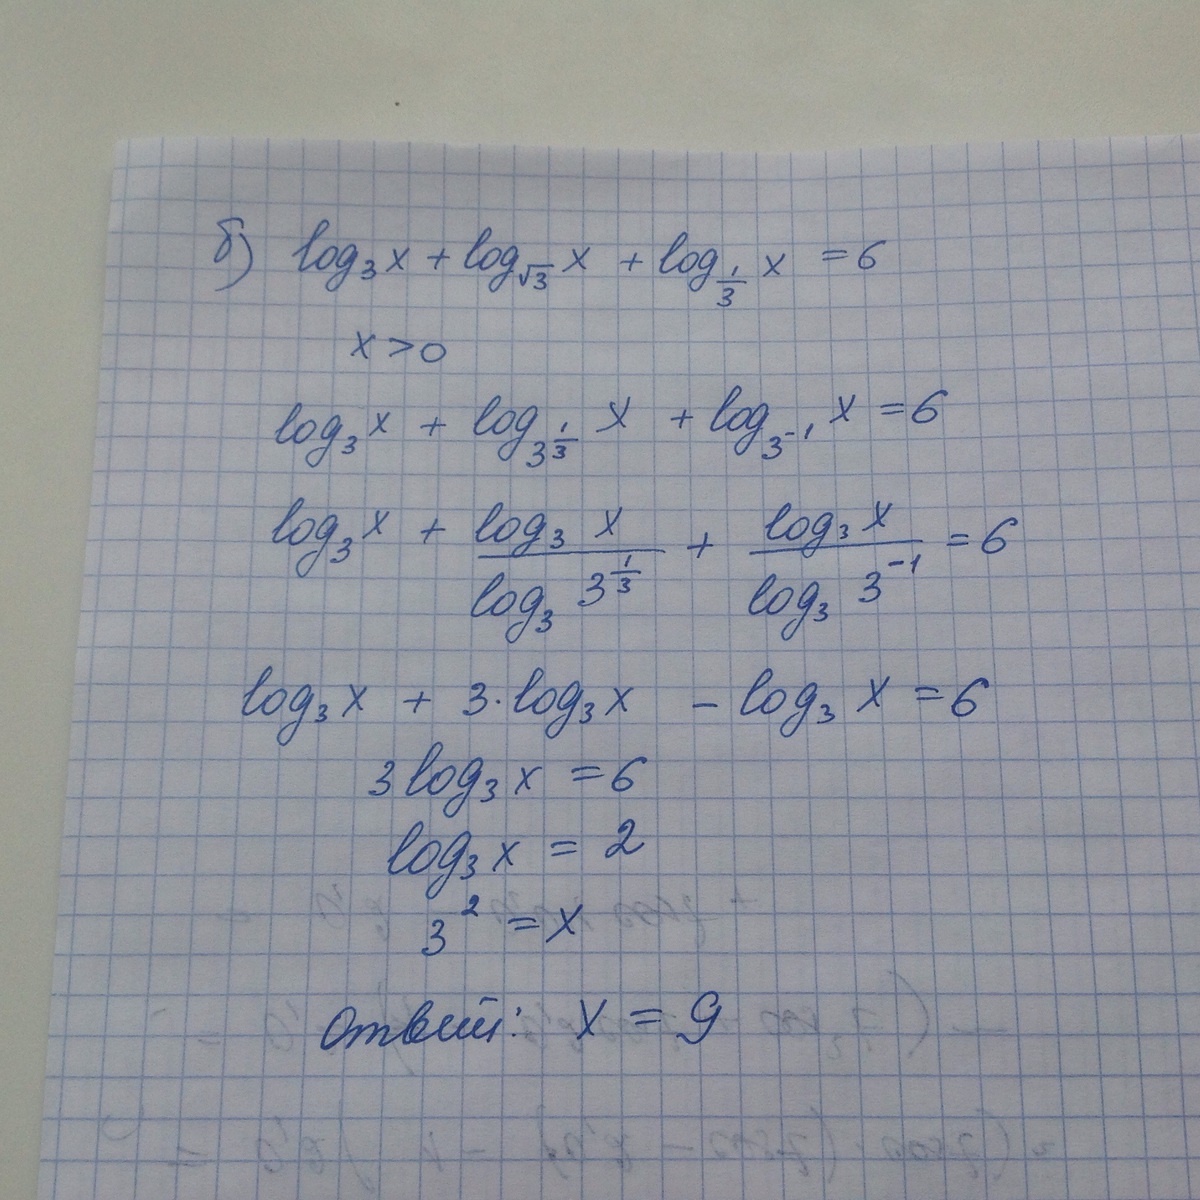 б) log₃x + log_√3 x + log_1/3 x = 6
x > 0
log₃x + log_3^1/3 x + log_3⁻¹ x = 6
log₃x + log₃ x / log₃ 3^1/3 + log₃ x / log₃ 3⁻¹ = 6
log₃x + 3·log₃x − log₃x = 6
3log₃x = 6
log₃x = 2
3² = x
Ответ: x = 9